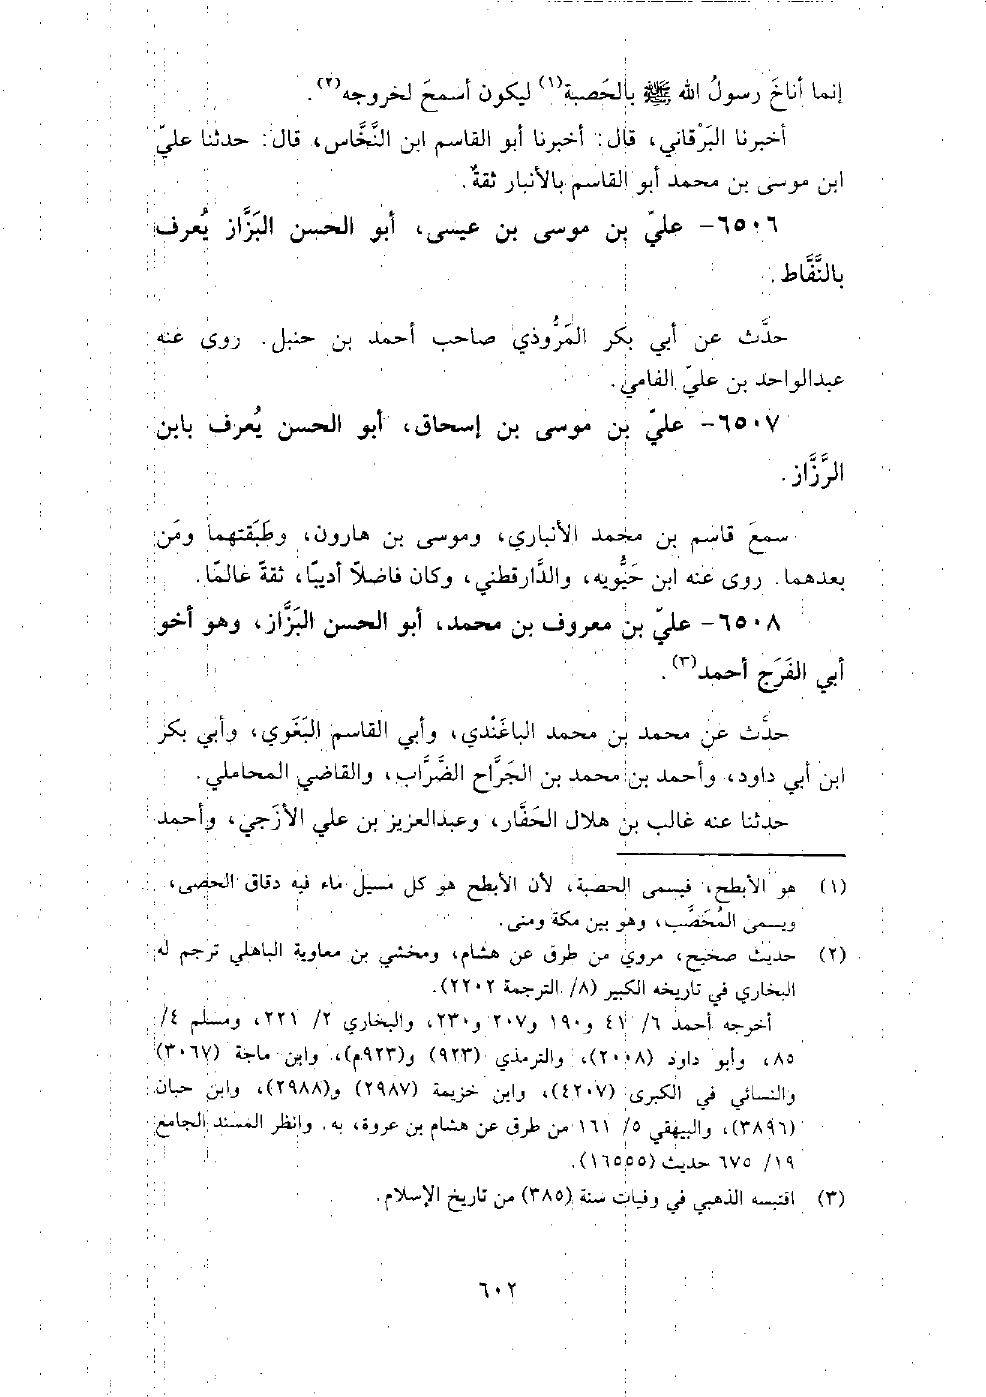 إنما أناخَ رسولُ الله ﷺ بالحَصبة(١) ليكون أسمحَ لخروجه(٢).
أخبرنا البَرْقاني، قال: أخبرنا أبو القاسم ابن النَّخَّاس، قال: حدثنا عليّ
ابن موسى بن محمد أبو القاسم بالأنبار ثقةٌ.
٦٥٠٦- عليّ بن موسى بن عيسى، أبو الحسن البَزَّاز يُعرف
بالنَّفَّاط.
حدَّث عن أبي بكر المَرُّوذي صاحب أحمد بن حنبل. روى عنه
عبدالواحد بن عليّ الفامي.
٦٥٠٧- عليّ بن موسى بن إسحاق، أبو الحسن يُعرف بابن
الرَّزَّاز.
سمعَ قاسم بن محمد الأنباري، وموسى بن هارون، وطَبَقتهما ومَن
بعدهما. روى عنه ابن حَيُّويه، والدَّارقطني، وكان فاضلاً أديبًا، ثقةً عالمًا.
٦٥٠٨- عليّ بن معروف بن محمد، أبو الحسن البَزَّاز، وهو أخو
أبي الفَرَج أحمد(٣).
حدَّث عن محمد بن محمد الباغَنْدي، وأبي القاسم البَغَوي، وأبي بكر
ابن أبي داود، وأحمد بن محمد بن الجَرَّاح الضَّرَّاب، والقاضي المحاملي.
حدثنا عنه غالب بن هلال الحَفَّار، وعبدالعزيز بن علي الأزَجي، وأحمد
(١) هو الأبطح، فيسمى الحصبة، لأن الأبطح هو كل مسيل ماء فيه دقاق الحصى،
ويسمى المُحَصَّب، وهو بين مكة ومنى.
(٢) حديث صحيح، مروي من طرق عن هشام، ومخشي بن معاوية الباهلي ترجم له
البخاري في تاريخه الكبير (٨/ الترجمة ٢٢٠٢).
أخرجه أحمد ٦/ ٤١ و١٩٠ و٢٠٧ و٢٣٠، والبخاري ٢/ ٢٢١، ومسلم ٤/
٨٥، وأبو داود (٢٠٠٨)، والترمذي (٩٢٣) و(٩٢٣م)، وابن ماجة (٣٠٦٧)
والنسائي في الكبرى (٤٢٠٧)، وابن خزيمة (٢٩٨٧) و(٢٩٨٨)، وابن حبان
(٣٨٩٦)، والبيهقي ٥/ ١٦١ من طرق عن هشام بن عروة، به. وانظر المسند الجامع
١٩/ ٦٧٥ حديث (١٦٥٥٥).
(٣) اقتبسه الذهبي في وفيات سنة (٣٨٥) من تاريخ الإسلام.
٦٠٢